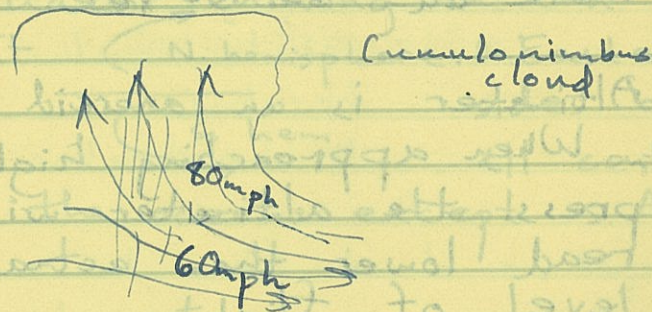 Cumulonimbus
cloud
80mph
60mph